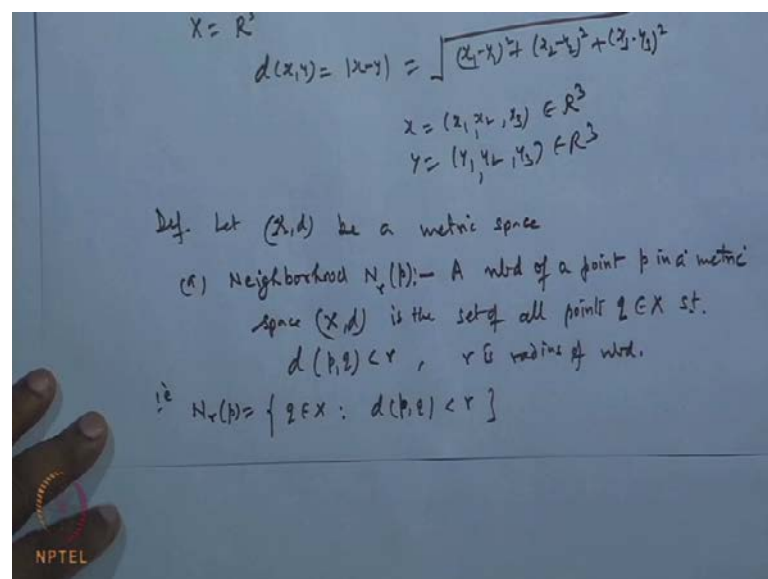 X = R³
d(x,y) = |x-y| = √(x₁-y₁)²+(x₂-y₂)²+(x₃-y₃)²
x = (x₁,x₂,x₃) ∈ R³
y = (y₁,y₂,y₃) ∈ R³
Def. Let (X,d) be a metric space
(a) Neighborhood Nᵣ(p):- A nbd of a point p in a metric
space (X,d) is the set of all points q ∈ X s.t.
d(p,q) < r , r is radius of nbd.
ie Nᵣ(p) = { q ∈ X : d(p,q) < r }
NPTEL